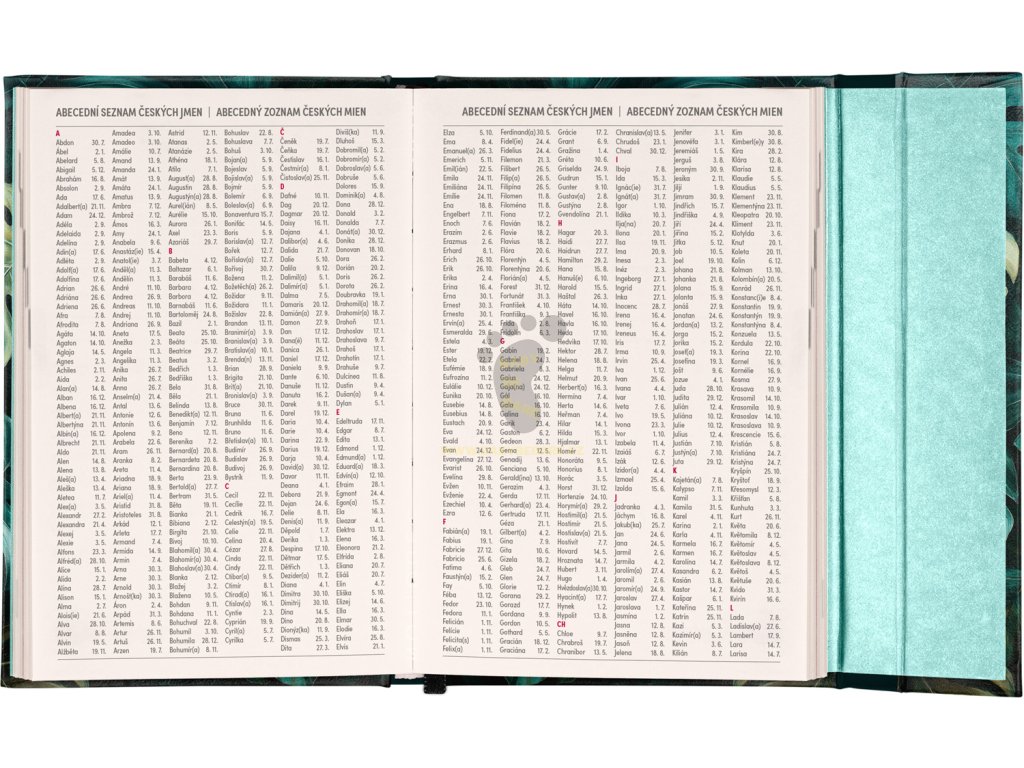 ABECEDNÍ SEZNAM ČESKÝCH JMEN | ABECEDNÝ ZOZNAM ČESKÝCH MIEN
A
Abdon 30. 7.
Ábel 2. 1.
Abelard 5. 8.
Abigail 5. 12.
Abrahám 16. 8.
Absolon 2. 9.
Ada 17. 6.
Adalbert(a) 21. 11.
Adam 24. 12.
Adéla 2. 9.
Adelaida 2. 9.
Adelína 2. 9.
Adin(a) 17. 6.
Adléta 2. 9.
Adolf(a) 17. 6.
Adolfína 17. 6.
Adrian 26. 6.
Adriána 26. 6.
Adriena 26. 6.
Afra 7. 8.
Afrodita 7. 8.
Agáta 14. 10.
Agaton 14. 10.
Aglaja 14. 5.
Agnes 2. 3.
Achiles 2. 11.
Aida 2. 2.
Alan(a) 14. 8.
Alban 16. 12.
Albena 16. 12.
Albert(a) 21. 11.
Albertýna 21. 11.
Albín(a) 16. 12.
Albrecht 21. 11.
Aldo 21. 11.
Alen 14. 8.
Alena 13. 8.
Aleš(a) 13. 4.
Aleška 13. 4.
Aletea 11. 7.
Alex(a) 3. 5.
Alexandr 27. 2.
Alexandra 21. 4.
Alexej 3. 5.
Alexie 3. 5.
Alfons 23. 3.
Alfréd(a) 28. 10.
Alice 15. 1.
Alida 2. 2.
Alina 28. 7.
Alison 15. 1.
Alma 2. 7.
Alois(ie) 21. 6.
Alva 28. 10.
Alvar 8. 8.
Alvin 19. 5.
Alžběta 19. 11.
Amadea 3. 10.
Amadeo 3. 10.
Amálie 10. 7.
Amand 13. 9.
Amanda 24. 1.
Amát 13. 9.
Amáta 24. 1.
Amatus 13. 9.
Ambra 7. 12.
Ambrož 7. 12.
Amos 16. 3.
Amy 24. 1.
Anabela 9. 6.
Anastáz(ie) 15. 4.
Anatol(e) 3. 7.
Anděl(a) 11. 3.
Andělín 11. 3.
André 11. 10.
Andrea 26. 9.
Andreas 11. 10.
Andrej 11. 10.
Andriana 26. 9.
Aneta 17. 5.
Anežka 2. 3.
Angela 11. 3.
Angelika 11. 3.
Anika 26. 7.
Anita 26. 7.
Anna 26. 7.
Anselm(a) 21. 4.
Antal 13. 6.
Antonie 12. 6.
Antonín 13. 6.
Apolena 9. 2.
Arabela 22. 6.
Aram 26. 11.
Aranka 8. 2.
Areta 11. 4.
Ariadna 18. 9.
Ariana 18. 9.
Ariel(a) 11. 4.
Aristid 31. 8.
Aristoteles 31. 8.
Arkád 12. 1.
Arleta 17. 7.
Armand 7. 4.
Armida 14. 9.
Armin 7. 4.
Arna 30. 3.
Arne 30. 3.
Arnold 30. 3.
Arnošt(ka) 30. 3.
Áron 2. 4.
Árpád 31. 3.
Artemis 8. 6.
Artur 26. 11.
Artuš 26. 11.
Arzen 19. 7.
Astrid 12. 11.
Atanas 2. 5.
Atanázie 2. 5.
Athéna 18. 1.
Atila 7. 1.
August(a) 28. 8.
Augustin 28. 8.
Augustýn(a) 28. 8.
Aurel(ián) 8. 5.
Aurélie 15. 10.
Aurora 26. 1.
Axel 23. 3.
Azariáš 29. 7.
B
Babeta 4. 12.
Baltazar 6. 1.
Barabáš 11. 6.
Barbara 4. 12.
Barbora 4. 12.
Barnabáš 11. 6.
Bartoloměj 24. 8.
Bazil 2. 1.
Beata 25. 10.
Beáta 25. 10.
Beatrice 29. 7.
Beatus 3. 2.
Bedřich 1. 3.
Bedřiška 1. 3.
Bela 31. 8.
Běla 21. 1.
Belinda 13. 8.
Benedikt(a) 12. 11.
Benjamin 7. 12.
Beno 12. 11.
Berenika 7. 2.
Bernard(a) 20. 8.
Bernardeta 20. 8.
Bernardina 20. 8.
Berta 23. 9.
Bertold(a) 27. 7.
Bertram 31. 5.
Běta 19. 11.
Bianka 21. 1.
Bibiana 2. 12.
Birgita 21. 10.
Bivoj 10. 10.
Blahomil(a) 30. 4.
Blahomír(a) 30. 4.
Blahoslav(a) 30. 4.
Blanka 2. 12.
Blažej 3. 2.
Blažena 10. 5.
Bohdan 9. 11.
Bohdana 11. 1.
Bohuchval 22. 8.
Bohumil 3. 10.
Bohumila 28. 12.
Bohumír(a) 8. 11.
Bohuslav 22. 8.
Bohuslava 7. 7.
Bohuš 3. 10.
Bojan(a) 5. 9.
Bojeslav 5. 9.
Bojislav(a) 5. 9.
Bojmír 5. 9.
Bolemír 6. 9.
Boleslav(a) 6. 9.
Bonaventura 15. 7.
Bonifác 14. 5.
Boris 5. 9.
Borislav(a) 12. 7.
Bořek 12. 7.
Bořislav(a) 12. 7.
Bořivoj 30. 7.
Božena 11. 2.
Božetěch(a) 26. 2.
Božidar 9. 11.
Božidara 11. 1.
Božislav 22. 8.
Brandon 13. 11.
Branimír(a) 3. 9.
Branislav(a) 3. 9.
Bratislav(a) 10. 1.
Brenda(n) 13. 11.
Brian 28. 8.
Brigita 21. 10.
Brit(a) 21. 10.
Bronislav(a) 3. 9.
Bruce 30. 11.
Bruna 11. 6.
Brunhilda 11. 6.
Bruno 11. 6.
Břetislav(a) 10. 1.
Budimír 26. 9.
Budislav 26. 9.
Budivoj 26. 9.
Bystrík 11. 9.
C
Cecil 22. 11.
Cecílie 22. 11.
Cedrik 16. 7.
Celestýn(a) 19. 5.
Celie 22. 11.
Celina 20. 4.
Cézar 27. 8.
Cinda 22. 11.
Cindy 22. 11.
Ctibor(a) 9. 5.
Ctimír 8. 1.
Ctirad(a) 16. 1.
Ctislav(a) 16. 1.
Cyntie 2. 3.
Cyprián 19. 9.
Cyril(a) 5. 7.
Cyrilka 5. 7.
Č
Čeněk 19. 7.
Čeňka 19. 7.
Čestislav 16. 1.
Čestmír(a) 8. 1.
Čistoslav(a) 25. 11.
D
Dafné 10. 11.
Dag 20. 12.
Dagmar 20. 12.
Daisy 16. 11.
Dajana 4. 1.
Dalibor(a) 4. 6.
Dalida 21. 7.
Dalie 5. 10.
Dalila 9. 12.
Dalimil(a) 5. 1.
Dalimír(a) 5. 1.
Dalma 7. 5.
Damaris 20. 12.
Damián(a) 27. 9.
Damon 27. 9.
Dan 17. 12.
Dana(é) 11. 12.
Danica 26. 1.
Daniel 17. 12.
Daniela 9. 9.
Dante 6. 10.
Danuše 11. 12.
Danuta 16. 2.
Darek 9. 11.
Darel 19. 12.
Daria 10. 4.
Darie 10. 4.
Darina 22. 9.
Darius 19. 12.
Darja 10. 4.
David(a) 30. 12.
Davor 11. 11.
Debora 21. 9.
Dejan 24. 6.
Delie 8. 11.
Denis(a) 11. 9.
Děpold 1. 7.
Derika 1. 3.
Despina 17. 10.
Dětmar 17. 5.
Dětřich 1. 3.
Dezider(a) 11. 2.
Diana 4. 1.
Dimitra 30. 10.
Dimitrij 30. 10.
Dina 14. 5.
Dino 20. 8.
Dionýz(ka) 11. 9.
Dismas 25. 3.
Dita 27. 3.
Diviš(ka) 11. 9.
Dluhoš 15. 3.
Dobromil(a) 5. 2.
Dobromír(a) 5. 2.
Dobroslav(a) 5. 6.
Dobruše 5. 6.
Dolores 15. 9.
Dominik(a) 4. 8.
Dona 28. 12.
Donald 3. 2.
Donalda 7. 7.
Donát(a) 30. 12.
Donika 28. 12.
Donovan 18. 10.
Dora 26. 2.
Dorián 20. 2.
Doris 26. 2.
Dorota 26. 2.
Doubravka 19. 1.
Drahomil(a) 18. 7.
Drahomír(a) 18. 7.
Drahoň 17. 1.
Drahoslav 17. 1.
Drahoslava 9. 7.
Drahoš 17. 1.
Drahotín 17. 1.
Drahuše 9. 7.
Dulcinea 11. 8.
Dustin 9. 4.
Dušan(a) 9. 4.
Dylan 5. 1.
E
Edeltruda 17. 11.
Edgar 8. 7.
Edita 13. 1.
Edmond 1. 12.
Edmund(a) 1. 12.
Eduard(a) 18. 3.
Edvin(a) 12. 10.
Egmont 24. 4.
Egon(a) 15. 7.
Ela 16. 3.
Eleazar 4. 1.
Elektra 13. 12.
Elena 16. 3.
Eleonora 21. 2.
Elfrida 2. 8.
Eliana 20. 7.
Eliáš 20. 7.
Elin 4. 7.
Eliška 5. 10.
Elizej 14. 6.
Ella 16. 3.
Elmar 30. 5.
Elodie 16. 3.
Elvíra 25. 8.
Elvis 21. 1.
ABECEDNÍ SEZNAM ČESKÝCH JMEN | ABECEDNÝ ZOZNAM ČESKÝCH MIEN
Elza 5. 10.
Ema 8. 4.
Emanuel(a) 26. 3.
Emerich 5. 11.
Emil(ián) 22. 5.
Emila 24. 11.
Emiliána 24. 11.
Emílie 24. 11.
Ena 18. 8.
Engelbert 7. 11.
Enoch 7. 6.
Erazim 2. 6.
Erazmus 2. 6.
Erhard 8. 1.
Erich 26. 10.
Erik 26. 10.
Erika 2. 4.
Erina 16. 4.
Erna 30. 1.
Ernest 30. 3.
Ernesta 30. 1.
Ervín(a) 25. 4.
Esmeralda 29. 6.
Estela 4. 3.
Ester 19. 12.
Etela 22. 2.
Eufémie 18. 9.
Eufrozína 11. 2.
Eulálie 10. 12.
Eunika 20. 10.
Eusebie 14. 8.
Eusebius 14. 8.
Eustach 20. 9.
Eva 24. 12.
Evald 4. 10.
Evan 24. 12.
Evangelína 27. 12.
Evarist 26. 10.
Evelína 29. 8.
Evžen 10. 11.
Evženie 22. 4.
Ezechiel 10. 4.
Ezra 12. 6.
F
Fabián(a) 19. 1.
Fabius 19. 1.
Fabricie 27. 12.
Fabricio 25. 6.
Fatima 4. 6.
Faustýn(a) 15. 2.
Fay 5. 10.
Féba 13. 12.
Fedor 23. 10.
Fedora 11. 1.
Felicián 1. 11.
Felície 1. 11.
Felicita(s) 1. 11.
Felix(a) 1. 11.
Ferdinand(a) 30. 5.
Fidel(ie) 24. 4.
Fidelius 24. 4.
Filemon 21. 3.
Filibert 26. 5.
Filip(a) 26. 5.
Filipína 26. 5.
Filomen 11. 8.
Filoména 11. 8.
Fiona 17. 2.
Flavián 18. 2.
Flavie 18. 2.
Flavius 18. 2.
Flóra 20. 6.
Florentýn 4. 5.
Florentýna 20. 6.
Florián(a) 4. 5.
Forest 31. 12.
Fortunát 31. 3.
František 4. 10.
Františka 9. 3.
Frida 2. 8.
Fridolín 6. 3.
G
Gabin 19. 2.
Gabriel 24. 3.
Gabriela 28. 3.
Gaius 24. 12.
Gaja(na) 24. 12.
Gál 16. 10.
Gala 16. 10.
Galina 16. 10.
Garik 23. 4.
Gaston 6. 2.
Gedeon 28. 3.
Gema 12. 5.
Genadij 13. 6.
Genciana 5. 10.
Gerald(ína) 13. 10.
Gerazim 4. 3.
Gerda 17. 11.
Gerhard(a) 23. 4.
Gertruda 17. 11.
Géza 21. 1.
Gilbert(a) 4. 2.
Gina 7. 9.
Gita 10. 6.
Gizela 18. 2.
Gleb 24. 7.
Glen 24. 7.
Glorie 12. 2.
Gorana 29. 2.
Gorazd 17. 7.
Gordana 9. 9.
Gordon 10. 5.
Gothard 5. 5.
Gracián 18. 12.
Graciána 17. 2.
Grácie 17. 2.
Grant 6. 9.
Gražina 1. 4.
Gréta 10. 6.
Griselda 24. 9.
Gudrun 15. 1.
Gunter 9. 10.
Gustav(a) 2. 8.
Gustýna 2. 8.
Gvendolína 21. 1.
H
Hagar 20. 3.
Haidi 27. 7.
Haidrun 27. 7.
Hamilton 29. 2.
Hana 15. 8.
Hanuš(e) 6. 10.
Harold 15. 5.
Haštal 26. 3.
Háta 14. 10.
Havel 16. 10.
Havla 16. 10.
Heda 17. 10.
Hedvika 17. 10.
Hektor 28. 7.
Helena 18. 8.
Helga 11. 7.
Helmut 20. 9.
Herbert(a) 16. 3.
Hermína 7. 4.
Herta 14. 6.
Heřman 7. 4.
Hilar 14. 1.
Hilda 15. 3.
Hjalmar 13. 1.
Homér 22. 11.
Honoráta 9. 5.
Honorius 8. 1.
Horác 3. 5.
Horst 31. 12.
Hortenzie 24. 10.
Horymír(a) 29. 2.
Hostimil(a) 21. 5.
Hostimír 21. 5.
Hostislav(a) 21. 5.
Hostivít 7. 7.
Hovard 14. 5.
Hroznata 14. 7.
Hubert 3. 11.
Hugo 1. 4.
Hvězdoslav(a) 30. 10.
Hyacint(a) 17. 7.
Hynek 1. 2.
Hypolit 13. 8.
CH
Chloe 9. 7.
Chrabroš 19. 7.
Chranibor 13. 5.
Chranislav(a) 13. 5.
Chrudoš 23. 1.
Chval 30. 12.
I
Iboja 7. 8.
Ida 15. 3.
Ignác(ie) 31. 7.
Ignát(a) 31. 7.
Igor 1. 10.
Ildika 10. 3.
Ilja(na) 20. 7.
Ilona 20. 1.
Ilsa 19. 11.
Ima 20. 9.
Inesa 2. 3.
Inéz 2. 3.
Ingeborg 27. 1.
Ingrid 27. 1.
Inka 27. 1.
Inocenc 28. 7.
Irena 16. 4.
Irenej 16. 4.
Ireneus 16. 4.
Iris 17. 7.
Irma 10. 9.
Irvin 25. 4.
Iva 1. 12.
Ivan 25. 6.
Ivana 4. 4.
Ivar 1. 10.
Iveta 7. 6.
Ivo 19. 5.
Ivona 23. 3.
Ivor 1. 10.
Izabela 11. 4.
Izaiáš 6. 7.
Izák 12. 6.
Izidor(a) 4. 4.
Izmael 25. 4.
Izolda 15. 6.
J
Jadranka 4. 3.
Jáchym 16. 8.
Jakub(ka) 25. 7.
Jan 24. 6.
Jana 24. 5.
Jarmil 2. 6.
Jarmila 4. 2.
Jarolím(a) 27. 4.
Jaromil 2. 6.
Jaromír(a) 24. 9.
Jaroslav 27. 4.
Jaroslava 1. 7.
Jasmína 1. 2.
Jasna 12. 8.
Jasněna 12. 8.
Jason 12. 8.
Jelena 18. 8.
Jenifer 3. 1.
Jenovéfa 3. 1.
Jeremiáš 1. 5.
Jerguš 3. 8.
Jeroným 30. 9.
Jesika 2. 11.
Jiljí 1. 9.
Jimram 30. 9.
Jindřich 15. 7.
Jindřiška 4. 9.
Jiří 24. 4.
Jiřina 15. 2.
Jitka 5. 12.
Job 10. 5.
Joel 19. 10.
Johana 21. 8.
Johanka 21. 8.
Jolana 15. 9.
Jolanta 15. 9.
Jonáš 27. 9.
Jonatan 24. 6.
Jordan(a) 13. 2.
Jorga 15. 2.
Jorika 15. 2.
Josef(a) 19. 3.
Josefína 19. 3.
Jošt 9. 6.
Jozue 4. 1.
Juda 28. 10.
Judita 29. 12.
Julián 12. 4.
Juliána 10. 12.
Julie 10. 12.
Julius 12. 4.
Justián 7. 10.
Justýn(a) 7. 10.
Juta 29. 12.
K
Kajetán(a) 7. 8.
Kalypso 7. 11.
Kamil 3. 3.
Kamila 31. 5.
Karel 4. 11.
Karina 2. 1.
Karla 4. 11.
Karmela 16. 7.
Karmen 16. 7.
Karolína 14. 7.
Kasandra 6. 2.
Kasián 13. 8.
Kastor 14. 7.
Kašpar 6. 1.
Kateřina 25. 11.
Katrin 25. 11.
Kazi 5. 3.
Kazimír(a) 5. 3.
Kevin 3. 6.
Kilián 8. 7.
Kim 30. 8.
Kimberl(e)y 30. 8.
Kira 28. 2.
Klára 12. 8.
Klarisa 12. 8.
Klaudie 5. 5.
Klaudius 5. 5.
Klement 23. 11.
Klementýna 23. 11.
Kleopatra 20. 10.
Kliment 23. 11.
Klotylda 3. 6.
Knut 20. 1.
Koleta 20. 11.
Kolin 6. 12.
Kolman 13. 10.
Kolombín(a) 20. 5.
Konrád 26. 11.
Konstanc(i)e 8. 4.
Konstantin 19. 9.
Konstantýn 19. 9.
Konstantýna 8. 4.
Konzuela 13. 5.
Kordula 22. 10.
Korina 22. 10.
Kornel 16. 9.
Kornélie 16. 9.
Kosma 27. 9.
Krasava 10. 9.
Krasomil 14. 10.
Krasomila 10. 9.
Krasoslav 14. 10.
Krasoslava 10. 9.
Krescencie 15. 6.
Kristián 5. 8.
Kristýna 24. 7.
Kryšpín 25. 10.
Kryštof 18. 9.
Křesomysl 12. 3.
Křišťan 5. 8.
Kunhuta 3. 3.
Kurt 26. 11.
Květa 20. 6.
Květomila 8. 12.
Květomír 4. 5.
Květoslav 4. 5.
Květoslava 8. 12.
Květoš 4. 5.
Květuše 20. 6.
Kvido 31. 3.
Kvirin 16. 6.
L
Lada 7. 8.
Ladislav(a) 27. 6.
Lambert 17. 9.
Lara 14. 7.
Larisa 14. 7.